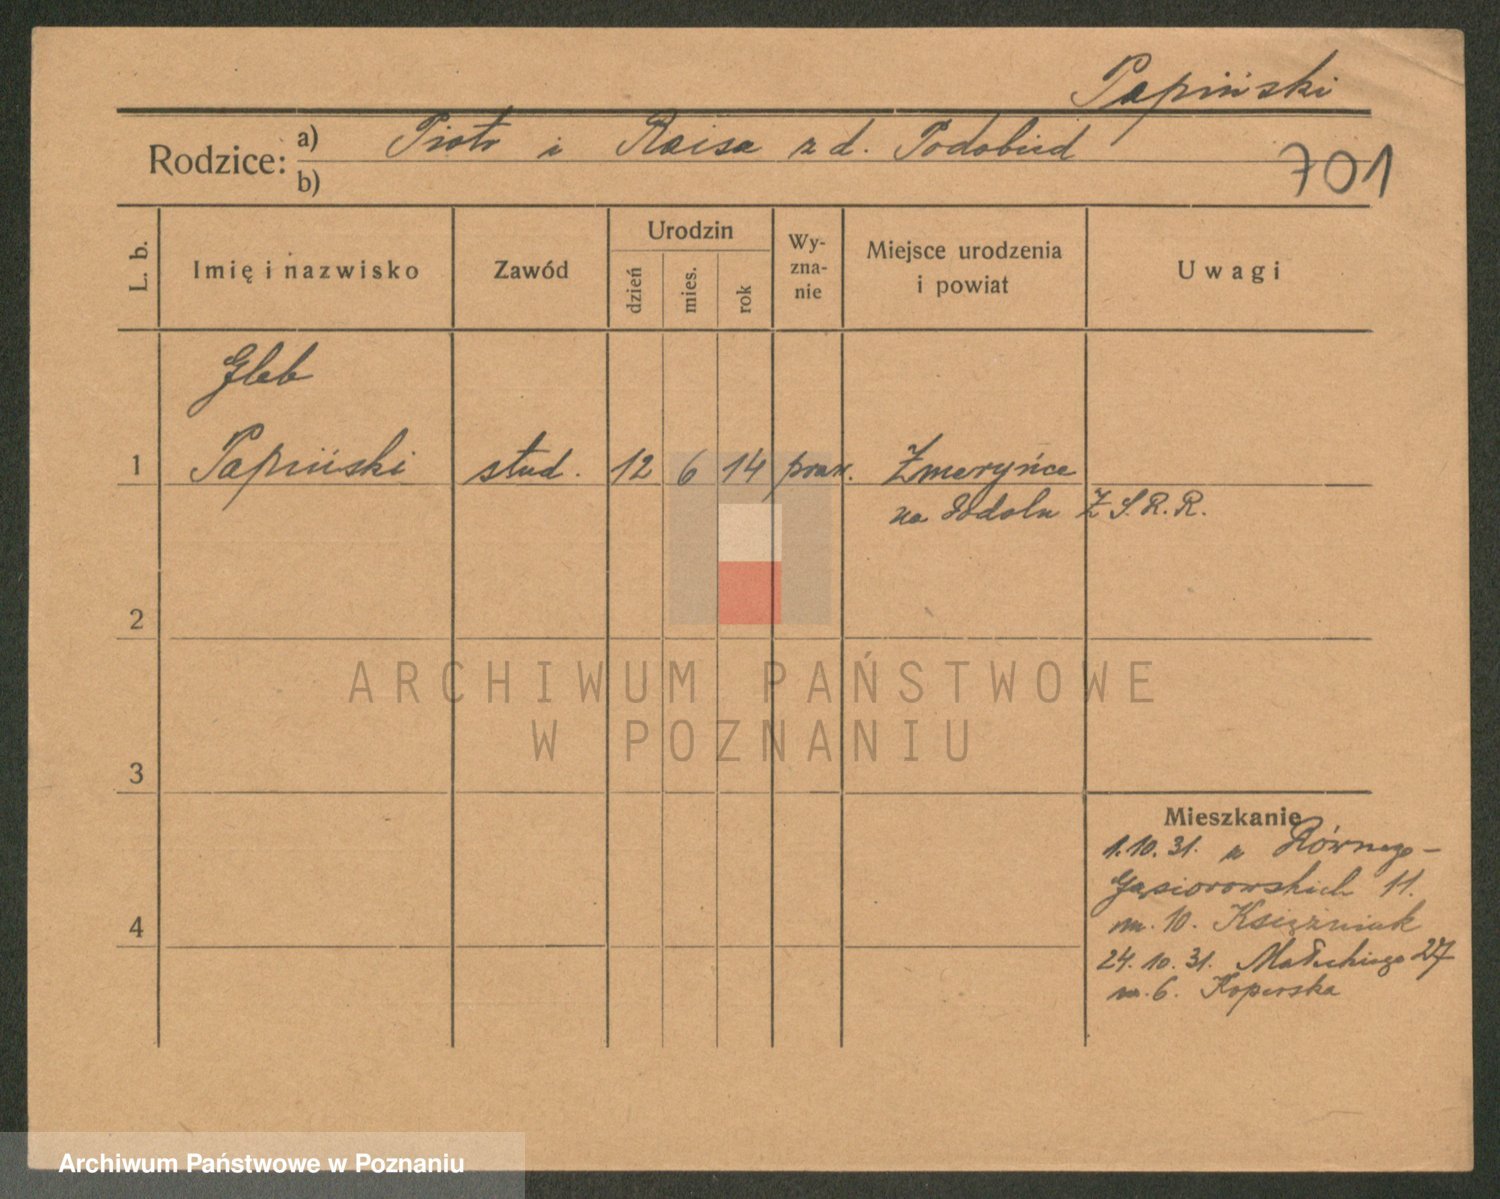 Papiński
Rodzice: a) Piotr i Raisa z d. Podobied
b)
701
L. b.
Imię i nazwisko
Zawód
Urodzin
dzień
mies.
rok
Wy-
zna-
nie
Miejsce urodzenia
i powiat
Uwagi
Gleb
1 Papiński stud. 12 6 14 praw. Żmeryńce
na Podolu Z.S.R.R.
2
ARCHIWUM PAŃSTWOWE
W POZNANIU
3
Mieszkanie
1.10.31. z Równego –
Gąsiorowskich 11.
m. 10. Księżniak
4
24.10.31. Małeckiego 27
m. 6. Koperska
Archiwum Państwowe w Poznaniu